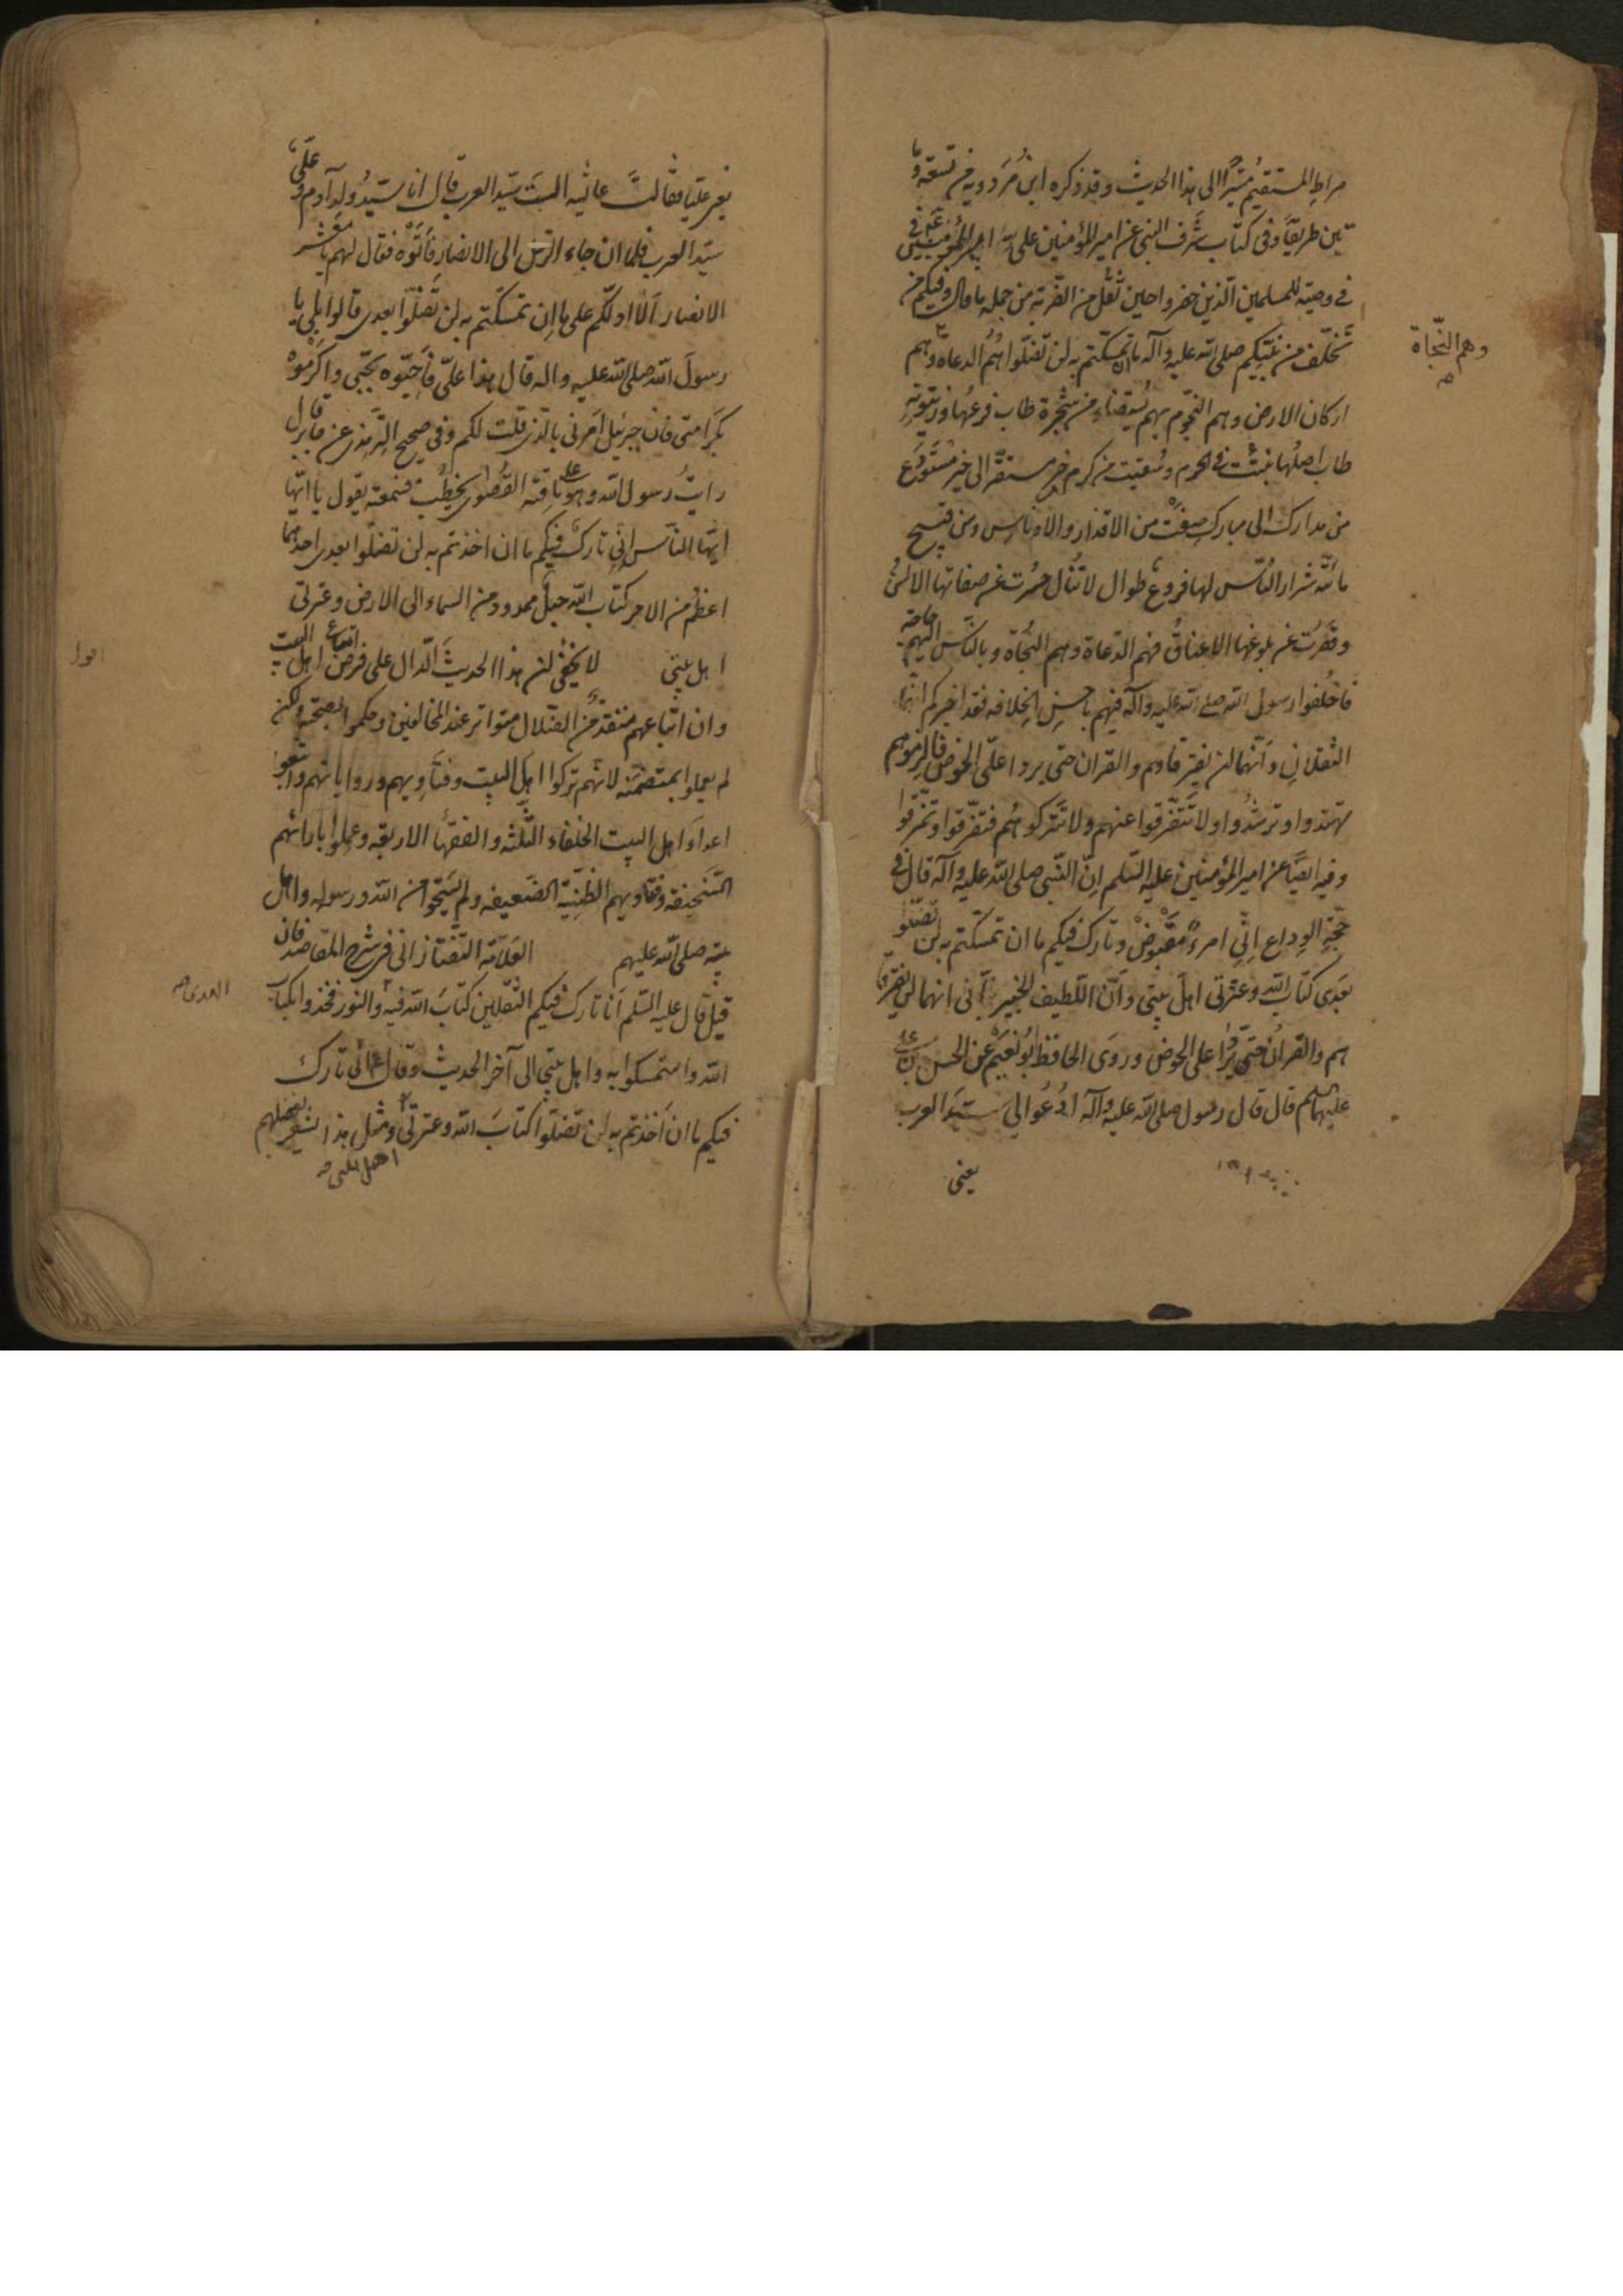 صراط المستقيم مشيرًا الى هذا الحديث وقد ذكره ابن مردويه من تسعة و
ثمانين طريقًا وفى كتاب شرف النبى عن امير المؤمنين على
فى وصيته للمسلمين الذين حضروا حين ثقل من الضربة من جمله ما قال وفيكم من
تخلّف من نبيّكم صلى الله عليه وآله ما ان تمسّكتم به لن تضلّوا هُم الدعاة وهم
وهم النّجاة صح
اركان الارض وهم النّجوم بهم يستضاء من شجرة طاب فرعها وزيتونةٍ
طاب اصلها نبتت فى الحرم وسُقيت من كرم خير مستقر الى خير مستودَع
من مبارك الى مبارك صفَت من الاقذار والادناس ومن قبيح
مأتيه شرار النّاس لها فروع طوال لا تُنال حسرت عن صفاتها الالسن
وقصُرت عن بلوغها الاعناق فهم الدّعاة وهم النّجاة وبالنّاس اليهم حاجة
فاخلفوا رسول الله صلى الله عليه وآله فيهم باحسن الخلافه فقد اخبركم انّهما
الثقلان وانّهما لن يفترقا هم والقران حتى يردا علىّ الحوض فالزموهم
تهتدوا وترشدوا ولا تتفرّقوا عنهم ولا تتركوهُم فتفرّقوا وتمزّقوا
وفيه ايضًا عن امير المؤمنين عليه السّلم انّ النّبى صلى الله عليه وآله قال فى
حجّة الوداع انّى امرءٌ مقبوض وتارك فيكم ما ان تمسّكتم به لن تضلّوا
بعدى كتاب الله وعترتى اهل بيتى وانّ اللّطيف الخبير نبّأنى انهما لن يفترقا
هم والقران حتى يردا على الحوض وروَى الحافظ ابُو نُعَيم عن الحسن بن على
عليهما السلم قال قال رسول صلى الله عليه وآله ادعُوا الىّ سيّد العرب
يعنى
يعنى عليّا فقالت عائشه الستَ سيّد العرب قال انا سيّدُ ولد آدم وعلىّ
سيّد العرب فلما ان جاء ارسل الى الانصار فأتوه فقال لهم يا معشر
الانصار اَلا ادلّكم على ما ان تمسّكتم به لن تضلّوا بعدى قالوا بلى يا
رسولَ الله صلى الله عليه واله قال هذا علىّ فأحبّوه بحبّى واكرموهُ
بكرامتى فان جبرئيل امَرنى بالّذى قلت لكم وفى صحيح الترمذى عن جابر قال
رايتُ رسول الله وهو على ناقته القُصوى يخطُب فسمعته يقول يا ايّها
ايّها النّاس انّى تارك فيكم ما ان اخذتم به لن تضلّوا بعدى احدهما
اعظمُ من الاخر كتاب الله حبلٌ ممدود من السماء الى الارض وعترتى
اهل بيتى لا يخفى ان هذا الحديثَ الدّال على فرض اتباع اهل البيت
اقول
وان اتّباعهم منقذٌ من الضّلال متواتر عند المخالفين وحكموا بصحّته ولكن
لم يعملوا بمتضمّنه لانّهم تركوا اهل البيت وفتاويهم ورواياتهم واتّبعوا
اعداءَ اهل البيت الخلفاء الثّلثه والفقهاء الاربعه وعملوا بارائهم
السّخيفة وفتاويهم الظنّيّة الضّعيفه ولم يستحيوا من الله ورسوله واهل
بيته صلى الله عليهم العلّامة التّفتازانى فى شرح المقاصد فان
قيل قال عليه السّلم انا تارك فيكم الثّقلين كتابَ الله فيه الهدى والنور فخذوا بكتاب
الهدى صح
الله واستمسكوا به واهل بيتى الى آخر الحديث وقال انّى تارك
فيكم ما ان اخذتم به لن تضلّوا كتابَ الله وعترتى ومثل هذا يُشعر بفضلهم
اهل بيتى صح